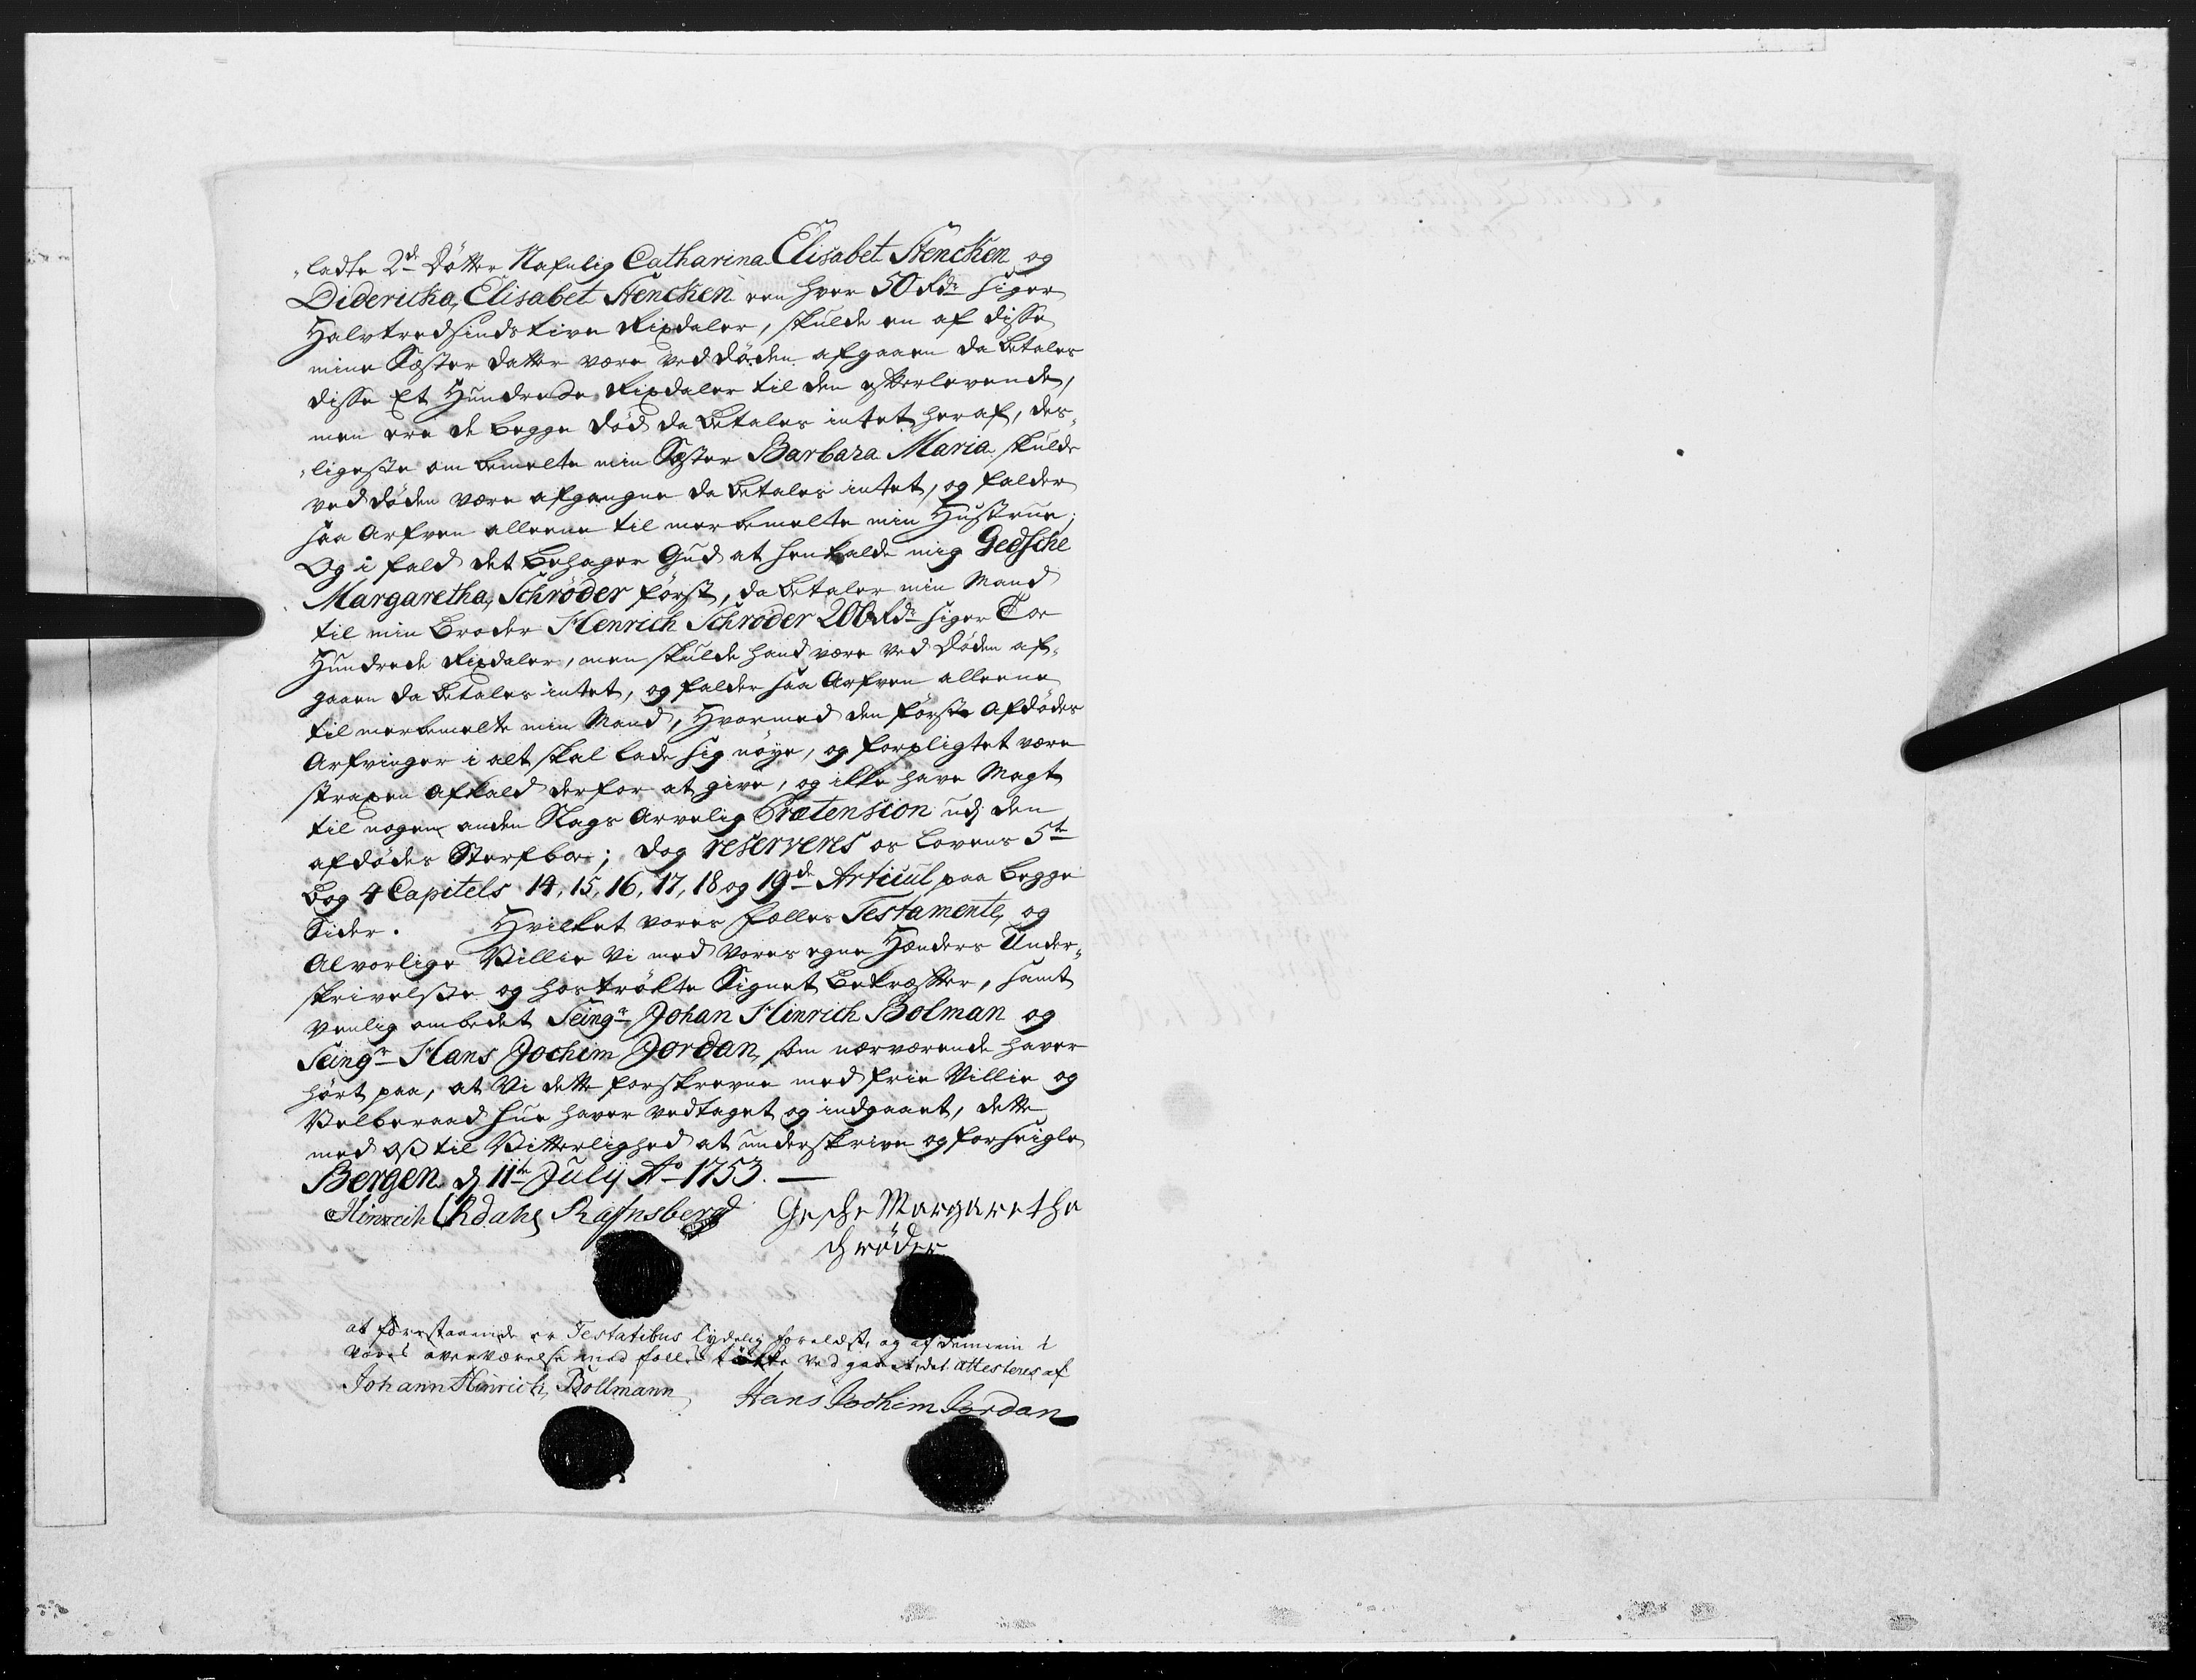 „ladte 2de Døttre Nafnlig Catharina Elisabet Stencken og
Didericka, Elisabet Stencken een hver 50 Rdr siger
Halvtredsindstive Rixdaler, skulde en af disse
mine Søster Døttre være ved døden afgaaen da betales
disse Et Hundrede Rixdaler til den efterlevende,
men ere de begge død da betales intet heraf, des„
„ligeste om bemelte min Søster Barbara Maria skulde
ved døden være afgangne da betales intet, og falder
saa Arfven alleene til merbemelte min Hustrue;
Og i fald det behager Gud at henkalde mig Gedsche
Margaretha, Schrøder først, da betaler min Mand
til min broder Henrich Schrøder 200 Rdr siger Toe
Hundrede Rixdaler, men skulde hand være ved døden af„
gaaen da betales intet, og falder saa Arfven alleene
til merbemelte min Mand, Hvormed den første Afdødes
Arfvinger i alt skal lade sig nøye, og forpligtet være
straxen Afkald derfor at give, og ikke have Magt
til nogen anden Slags Arvelig Prætension udj den
afdødes Sterfboe; dog reserveres os Lovens 5te
Bog 4 Capitels 14, 15, 16, 17, 18 og 19de Articul paa begge
Sider. Hvilket vores fælles Testamente, og
Alvorlige Villie Vi med vores egne Hænders Under„
skrivelsse og hostrøkte Signet bekræfter, samt
venlig ombedet Seingr Johan Hinrich Bolman og
Seingr Hans Jochim Jordan, som nærværende haver
hørt paa, at Vi dette forskrevne med frie Villie og
Velberaad hue haver vedtaget og indgaaet, dette
med os til Vitterlighed at underskrive og forseigle
Bergen d 11te Julij Ao 1753. —
Hinrich Rafnsberg Gesche Margaretha
Schrøder
at forestaaende er Testatibus lydelig forelæst, og af dennem i
vores overværelse med fælles vedgaaet, det attesteres af
Johann Hinrich, Bollmann Hans Jochim Jordan